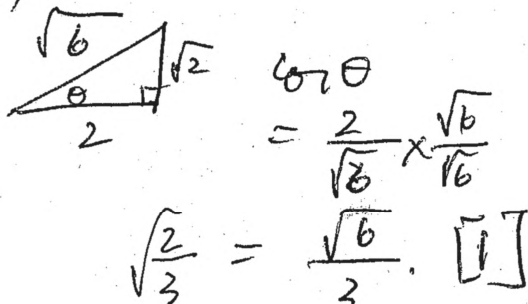 √6
√2
θ
2
cos θ
= 2/√6 × √6/√6
√(2/3) = √6/3. [1]